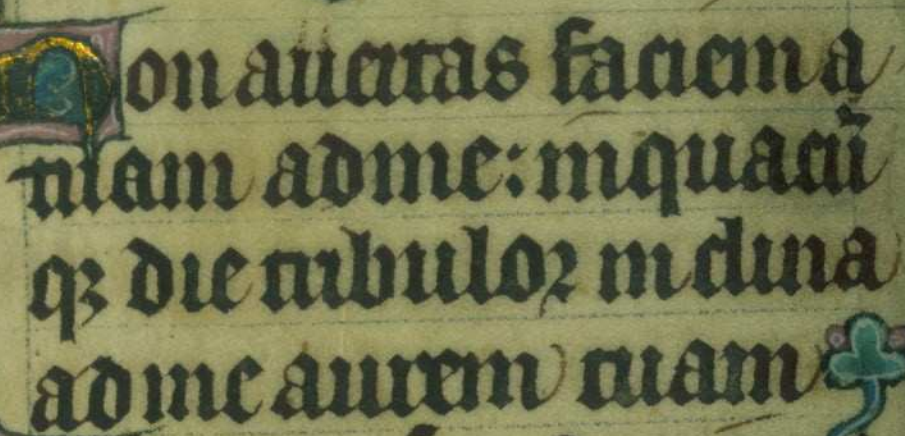 Non auertas faciem a
tuam adme: inquacū
qꝫ die tribuloꝛ inclina
adme aurem tuam